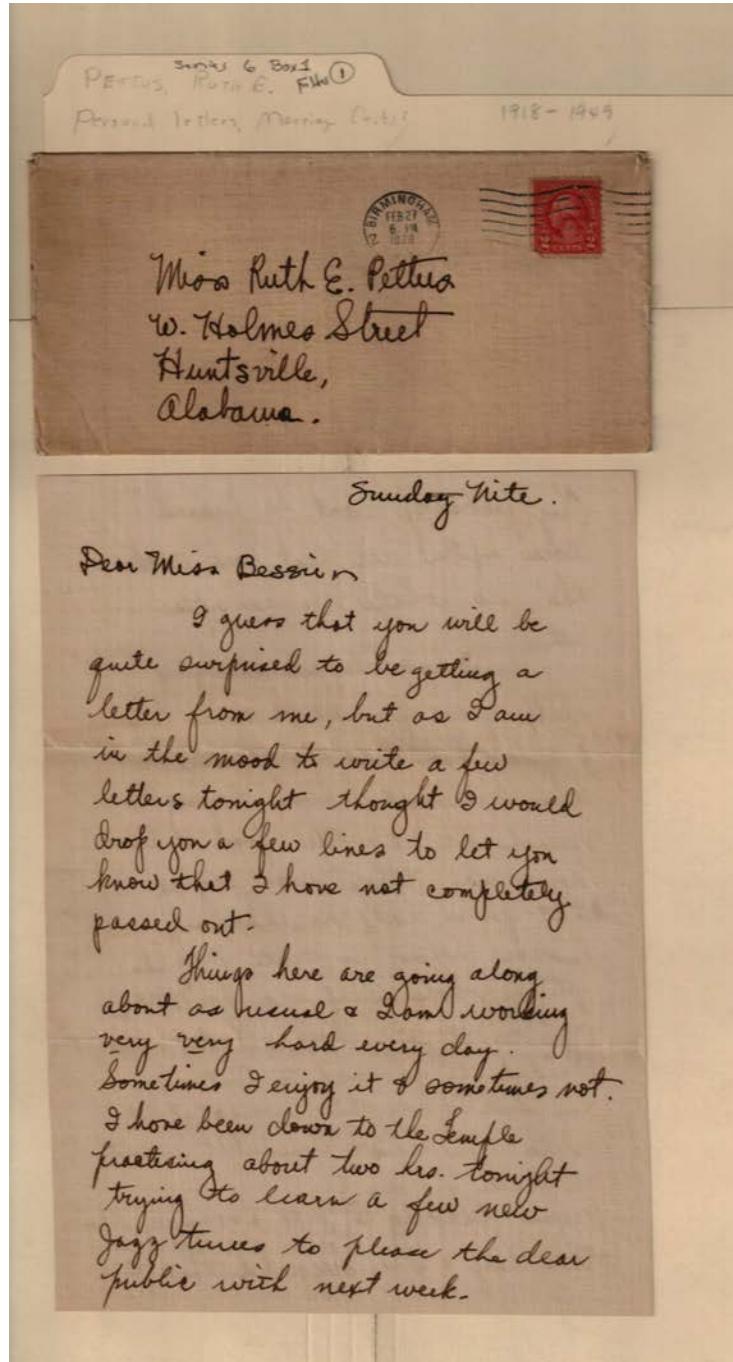 Series 6 Box 1
Pettus, Ruth E. File 1
Personal letters, 1918-1949
BIRMINGHAM
FEB 27
6 PM
2 CENTS 2
Miss Ruth E. Pettus
W. Holmes Street
Huntsville,
Alabama.
Sunday Nite.
Dear Miss Bessie,
I guess that you will be
quite surprised to be getting a
letter from me, but as I am
in the mood to write a few
letters tonight thought I would
drop you a few lines to let you
know that I have not completely
passed out.
Things here are going along
about as usual & I am working
very very hard every day.
Sometimes I enjoy it & sometimes not.
I have been down to the Temple
practising about two hrs. tonight
trying to learn a few new
Jazz tunes to please the dear
public with next week.